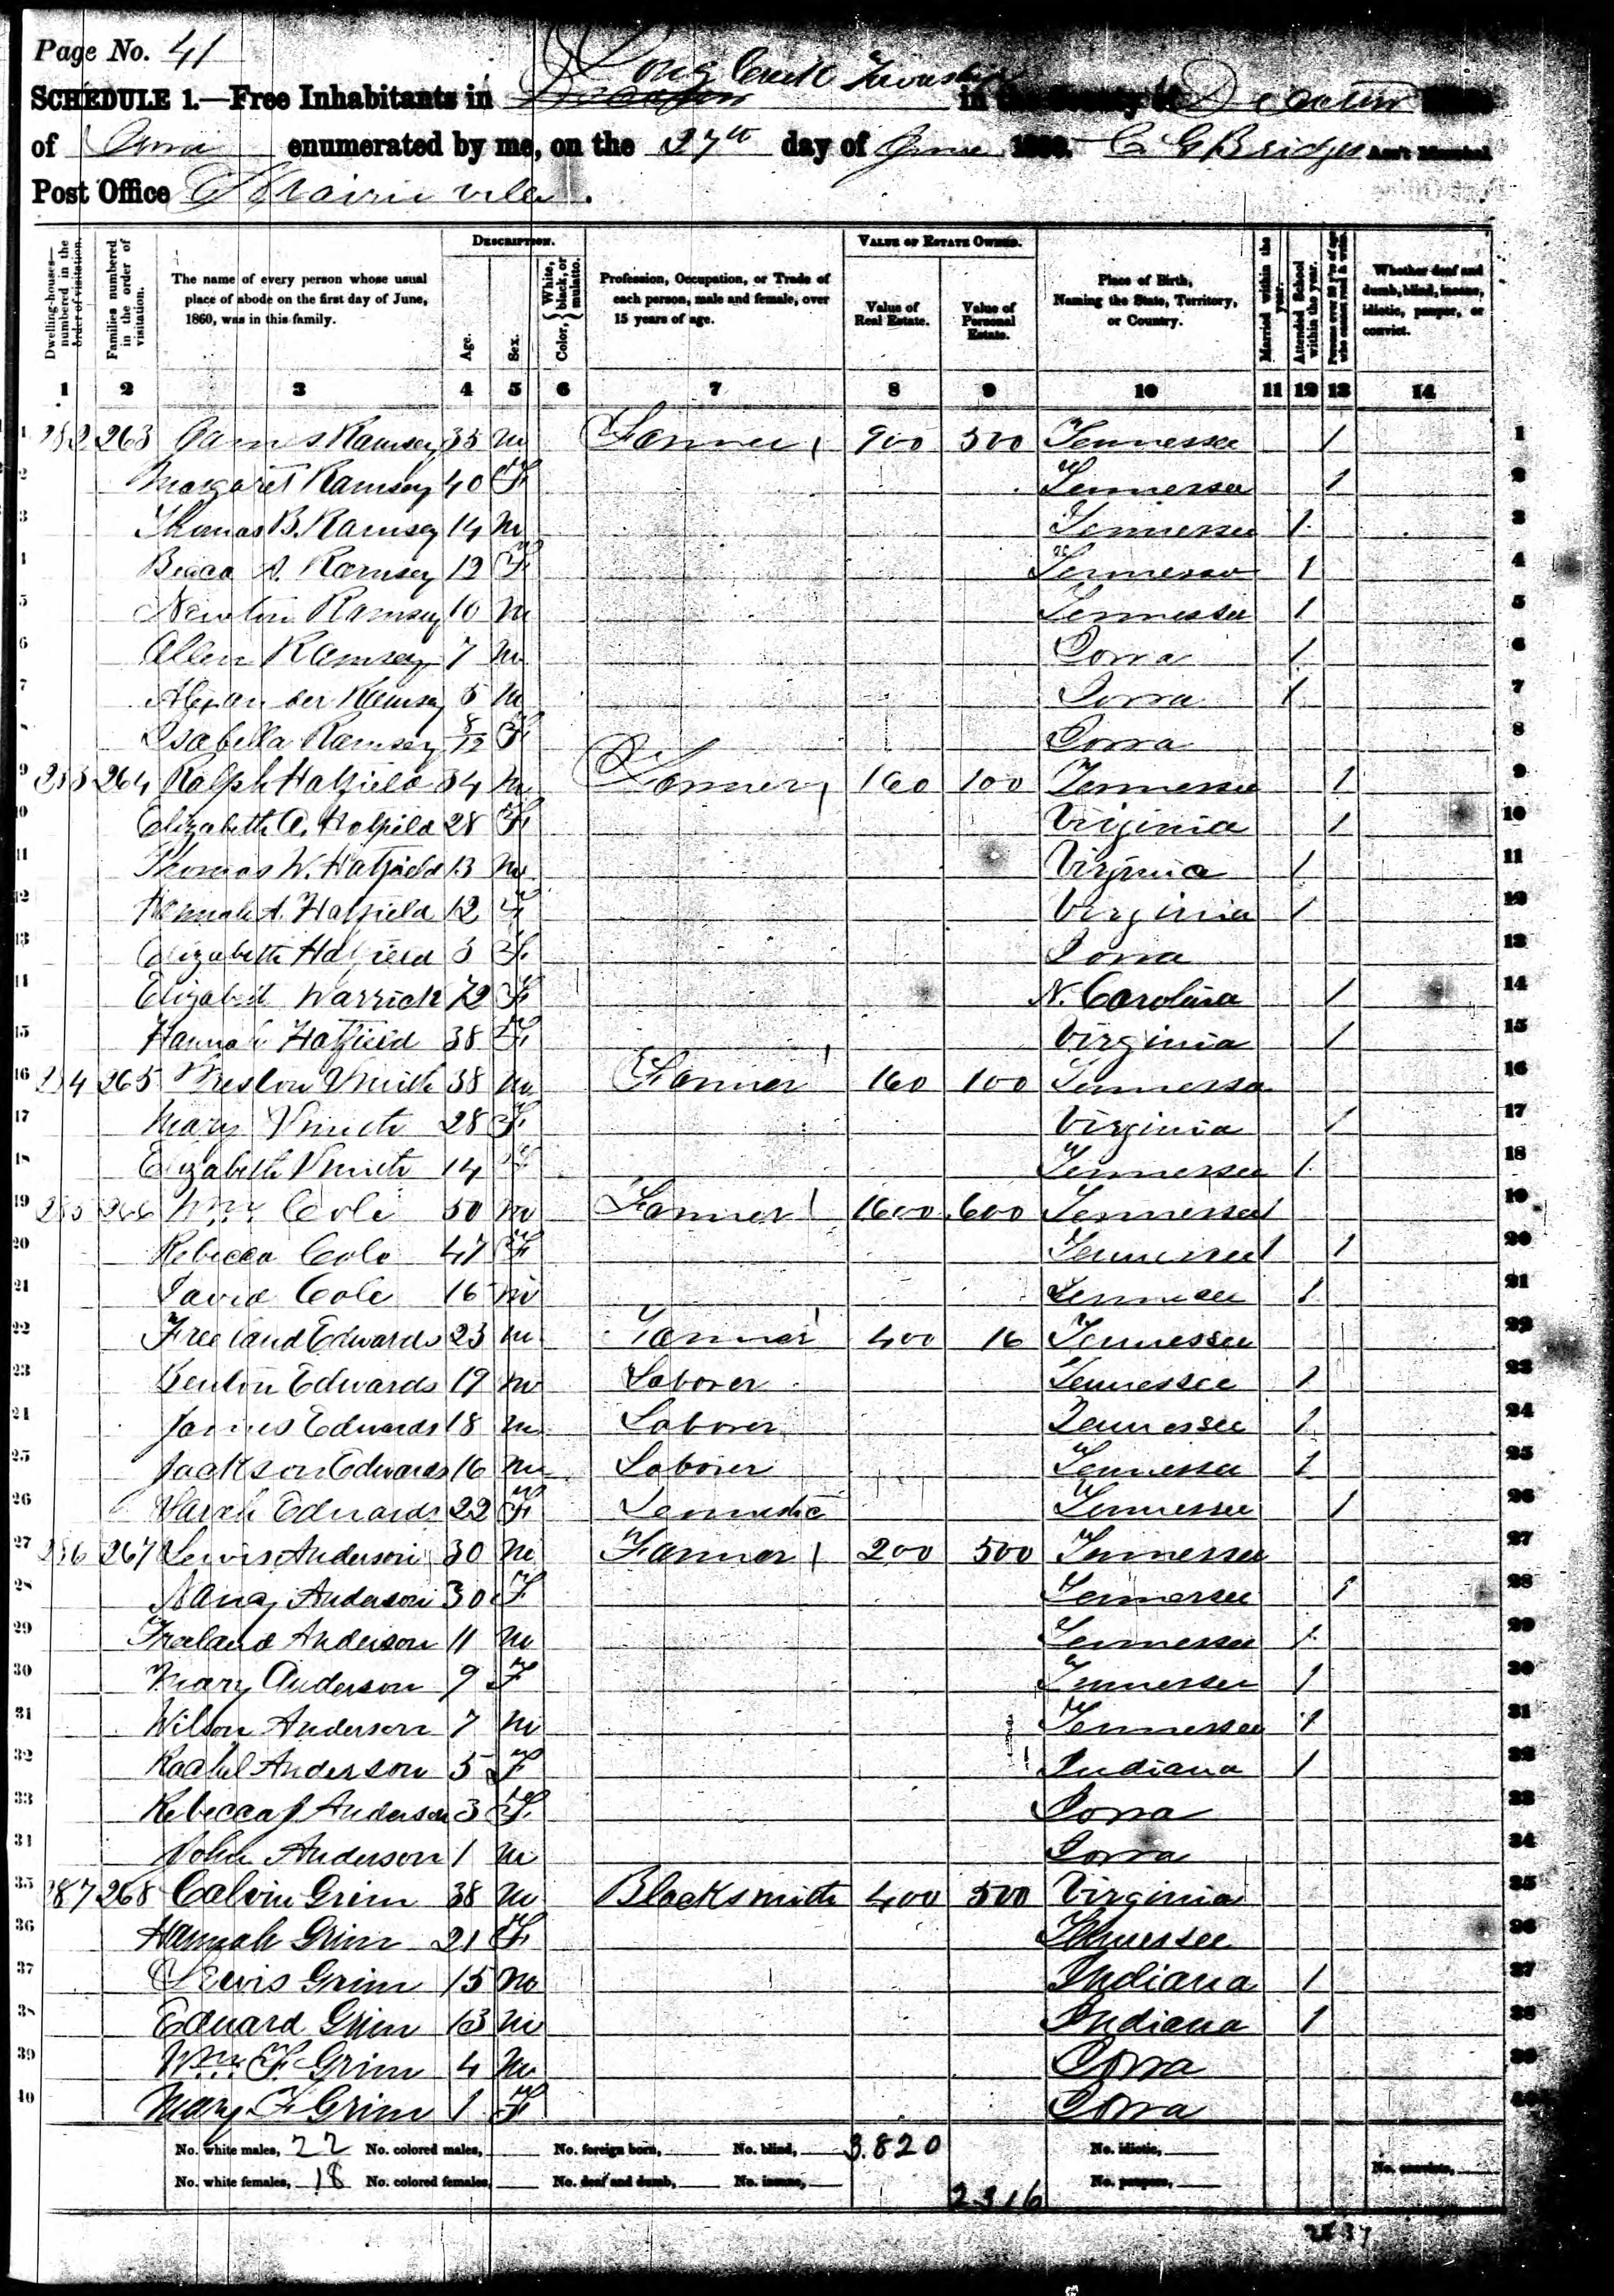 Page No. 41
SCHEDULE 1.—Free Inhabitants in Long Creek Township in the County of Decatur State
of Iowa enumerated by me, on the 27th day of June 1860. C. G. Bridges Ass't Marshal
Post Office Prairie ville.
Dwelling-houses—numbered in the order of visitation.
Families numbered in the order of visitation.
The name of every person whose usual place of abode on the first day of June, 1860, was in this family.
DESCRIPTION.
Age.
Sex.
Color, White, black, or mulatto.
Profession, Occupation, or Trade of each person, male and female, over 15 years of age.
VALUE OF ESTATE OWNED.
Value of Real Estate.
Value of Personal Estate.
Place of Birth, Naming the State, Territory, or Country.
Married within the year.
Attended School within the year.
Persons over 20 y'rs of age who cannot read & write.
Whether deaf and dumb, blind, insane, idiotic, pauper, or convict.
1 2 3 4 5 6 7 8 9 10 11 12 13 14
1 282 263 James Ramsey 35 m Farmer 900 500 Tennessee / 1
2 Margaret Ramsey 40 F Tennessee / 2
3 Thomas B. Ramsey 14 m Tennessee 1 3
4 Ramsey 12 F Tennessee 1 4
5 Newton Ramsey 10 m Tennessee 1 5
6 Allen Ramsey 7 m Iowa 1 6
7 Alexander Ramsey 5 m Iowa 1 7
8 Isabella Ramsey 8/12 F Iowa 8
9 283 264 Ralph Hatfield 34 m Farmer 160 100 Tennessee 1 9
10 Elizabeth A. Hatfield 28 F Virginia / 10
11 Thomas W. Hatfield 13 m Virginia 1 11
12 Hannah A. Hatfield 12 F Virginia 1 12
13 Elizabeth Hatfield 3 F Iowa 13
14 Elizabeth Warrick 72 F N. Carolina / 14
15 Hannah Hatfield 38 F Virginia / 15
16 284 265 Preston Smith 38 m Farmer 160 100 Tennessee 16
17 Mary Smith 28 F Virginia / 17
18 Elizabeth Smith 14 F Tennessee 1 18
19 285 266 Wm. Cole 50 m Farmer 1600 600 Tennessee / 19
20 Rebecca Cole 47 F Tennessee / 1 20
21 David Cole 16 m Tennessee 1 21
22 Freeland Edwards 23 m Farmer 400 16 Tennessee 22
23 Benton Edwards 19 m Laborer Tennessee 1 23
24 James Edwards 18 m Laborer Tennessee 1 24
25 Jackson Edwards 16 m Laborer Tennessee 1 25
26 Sarah Edwards 22 F Domestic Tennessee 1 26
27 286 267 Lewis Anderson 30 m Farmer 200 500 Tennessee 27
28 Nancy Anderson 30 F Tennessee 1 28
29 Freeland Anderson 11 m Tennessee 1 29
30 Mary Anderson 9 F Tennessee 1 30
31 Wilson Anderson 7 m Tennessee 1 31
32 Rachel Anderson 5 F Indiana 1 32
33 Rebecca J Anderson 3 F Iowa 33
34 John Anderson 1 m Iowa 34
35 287 268 Calvin Grim 38 m Blacksmith 400 500 Virginia 35
36 Hannah Grim 21 F Tennessee 36
37 Lewis Grim 15 m Indiana 1 37
38 Edward Grim 13 m Indiana 1 38
39 Wm. F Grim 4 m Iowa 39
40 Mary F Grim 1 F Iowa 40
No. white males, 22 No. colored males, No. foreign born, No. blind, 3.820 No. idiotic,
No. white females, 18 No. colored females, No. deaf and dumb, No. insane, No. paupers, No. convicts,
2316